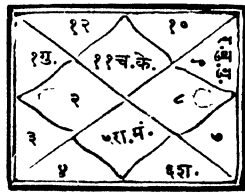 १२ १०
१गु. ११च.के. ९
२ ८
३ ५.रा.मं. ७
४ ६श.